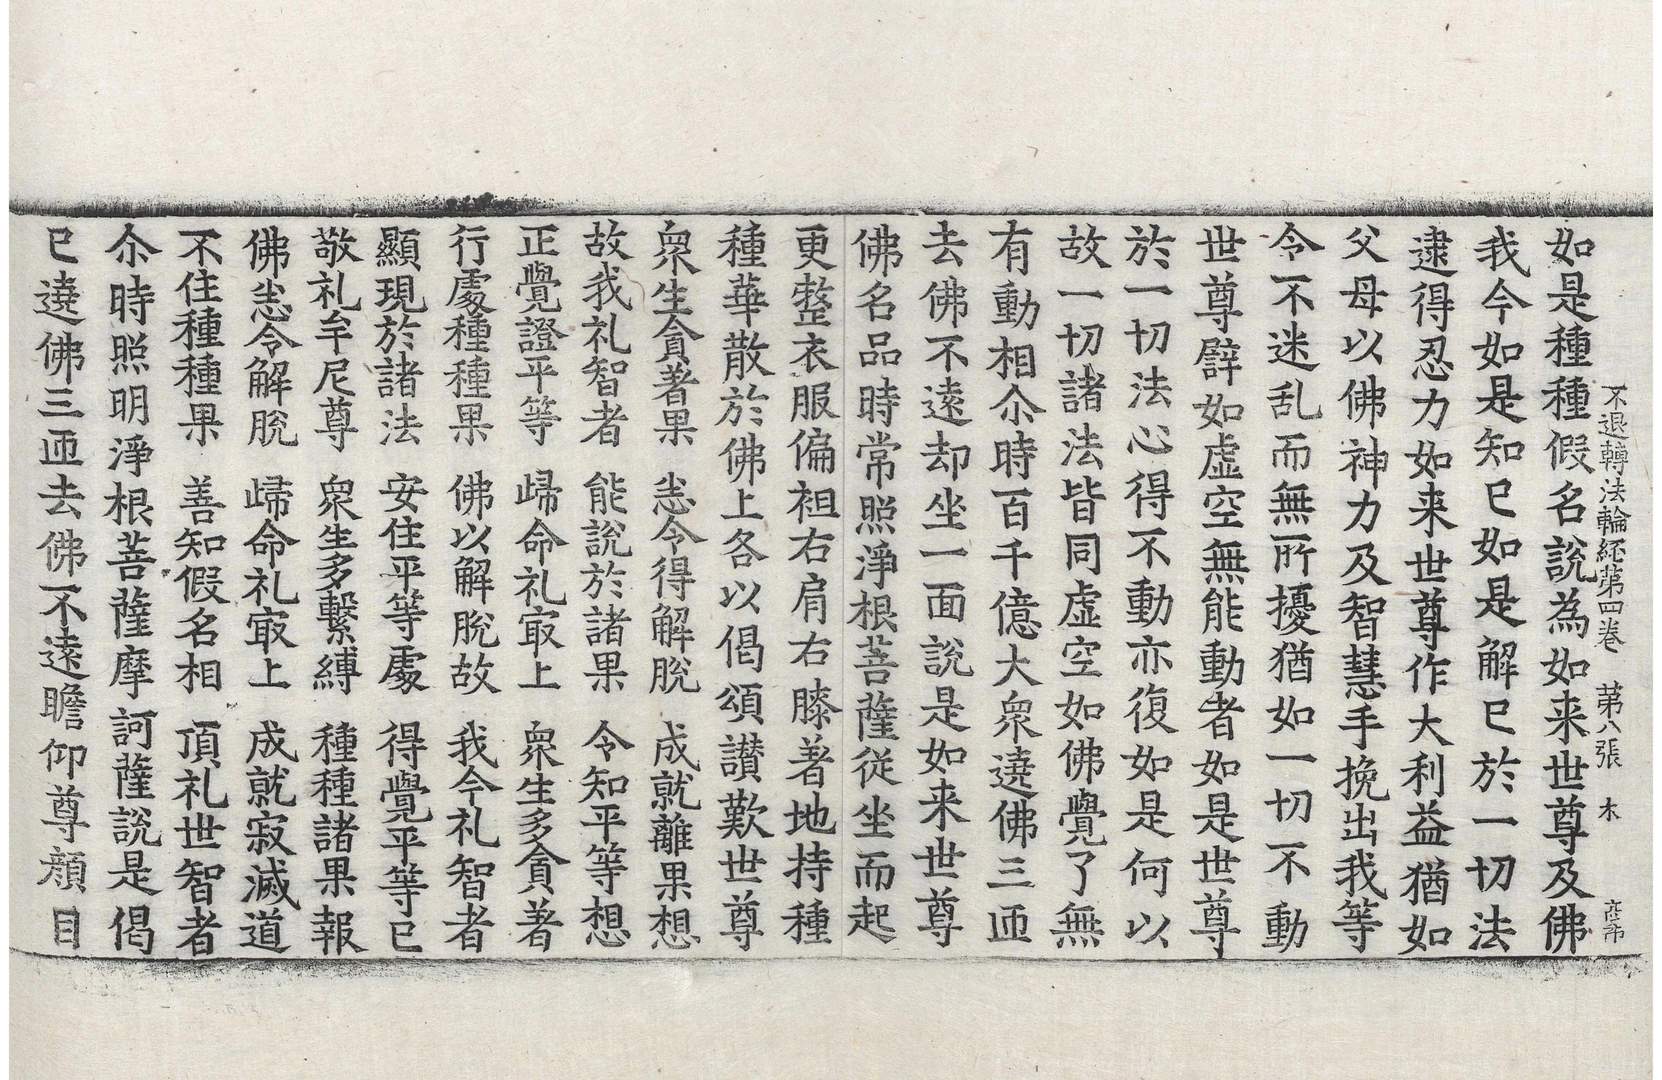 不退轉法輪經第四卷 第八張 木 彦帘
如是種種假名說為如来世尊及佛
我今如是知已如是解已於一切法
逮得忍力如来世尊作大利益猶如
父母以佛神力及智慧手挽出我等
令不迷乱而無所擾猶如一切不動
世尊譬如虛空無能動者如是世尊
於一切法心得不動亦復如是何以
故一切諸法皆同虛空如佛覺了無
有動相尒時百千億大衆遶佛三匝
去佛不遠却坐一面說是如来世尊
佛名品時常照淨根菩薩従坐而起
更整衣服偏袒右肩右膝著地持種
種華散於佛上各以偈頌讃歎世尊
衆生貪著果 悉令得解脫 成就離果想
故我礼智者 能說於諸果 令知平等想
正覺證平等 歸命礼㝡上 衆生多貪著
行處種種果 佛以解脫故 我今礼智者
顯現於諸法 安住平等處 得覺平等已
敬礼牟尼尊 衆生多繫縛 種種諸果報
佛悉令解脫 歸命礼㝡上 成就寂滅道
不住種種果 善知假名相 頂礼世智者
尒時照明淨根菩薩摩訶薩說是偈
已遶佛三匝去佛不遠瞻仰尊顔目